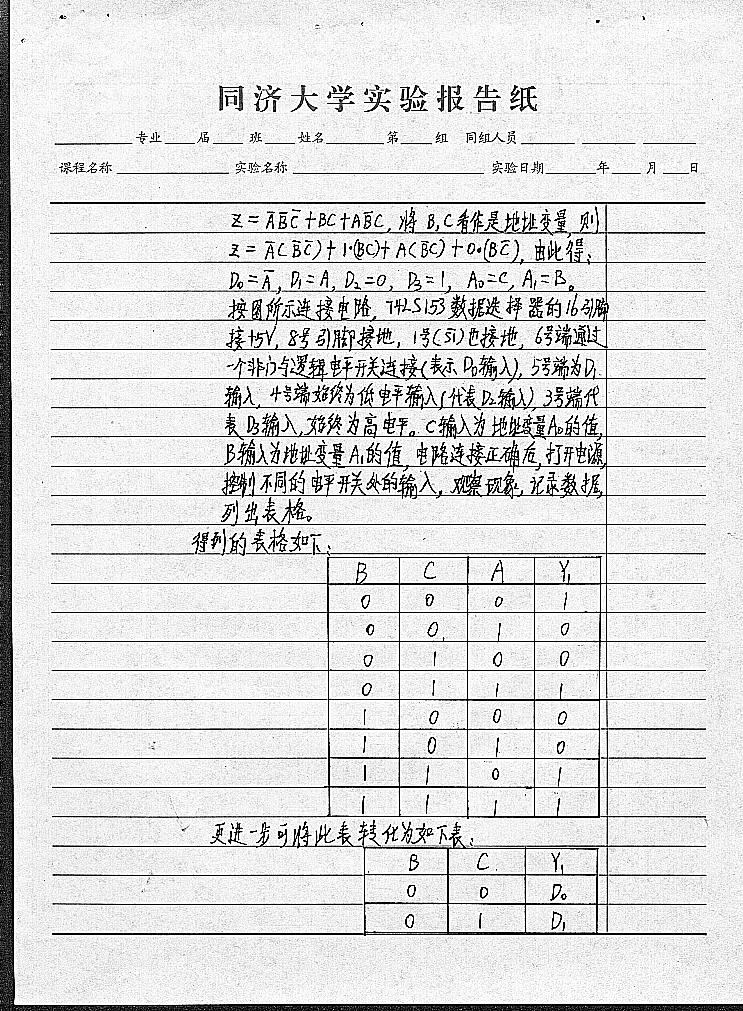 同济大学实验报告纸
专业 届 班 姓名 第 组 同组人员
课程名称 实验名称 实验日期 年 月 日
Z = A̅B̅C̅ + BC + AB̅C, 将B,C看作是地址变量,则
Z = A̅(B̅C̅) + 1·(BC) + A(B̅C) + 0·(BC̅), 由此得:
D₀=A̅, D₁=A, D₂=0, D₃=1, A₀=C, A₁=B。
按图所示连接电路, 74LS153数据选择器的16引脚
接+5V, 8号引脚接地, 1号(S̅1̅)也接地, 6号端通过
一个非门与逻辑电平开关连接(表示D₀输入), 5号端为D₁
输入, 4号端始终为低电平输入(代表D₂输入) 3号端代
表D₃输入, 始终为高电平。C输入为地址变量A₀的值,
B输入为地址变量A₁的值, 电路连接正确后, 打开电源,
控制不同的电平开关处的输入, 观察现象, 记录数据,
列出表格。
得到的表格如下:
B C A Y₁
0 0 0 1
0 0 1 0
0 1 0 0
0 1 1 1
1 0 0 0
1 0 1 0
1 1 0 1
1 1 1 1
更进一步可将此表转化为如下表:
B C Y₁
0 0 D₀
0 1 D₁